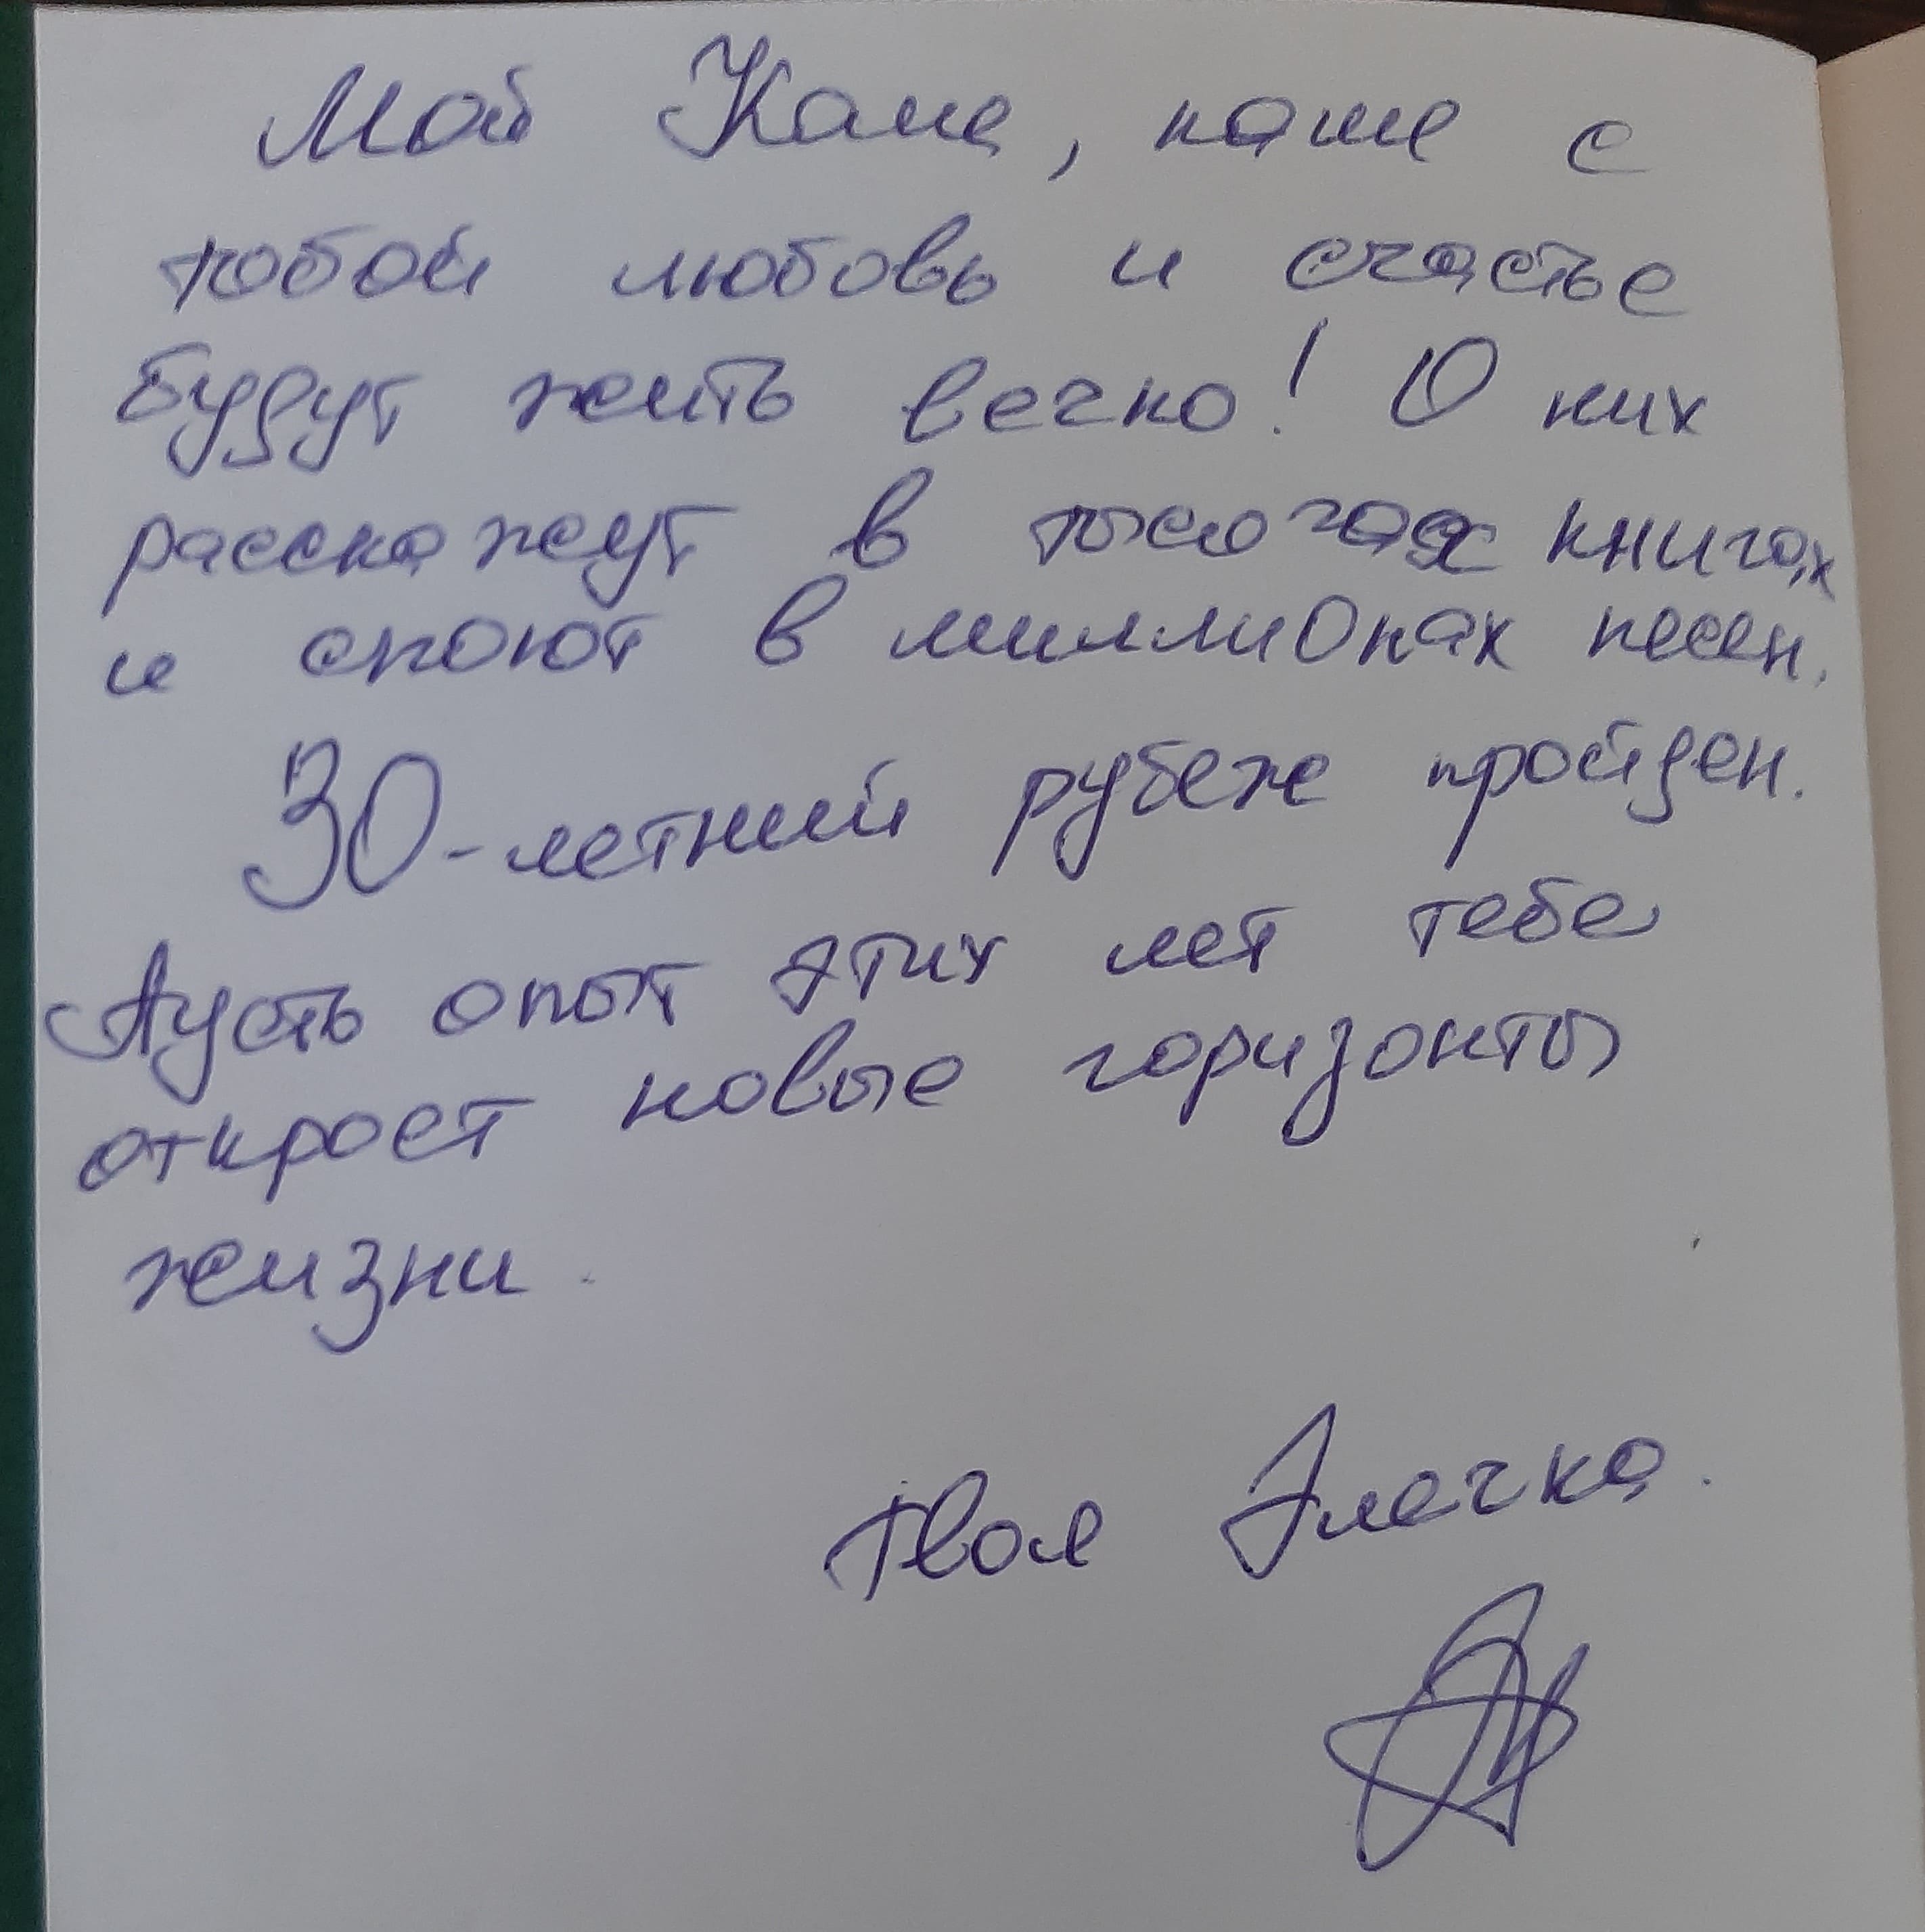 Мой Каме, наше с
тобой любовь и счастье
будут жить вечно! О них
расскажут в тысячах книгах
и споют в миллионах песен.
30-летний рубеж пройден.
Пусть опыт этих лет тебе
откроет новые горизонты
жизни.
твоя Элечка.